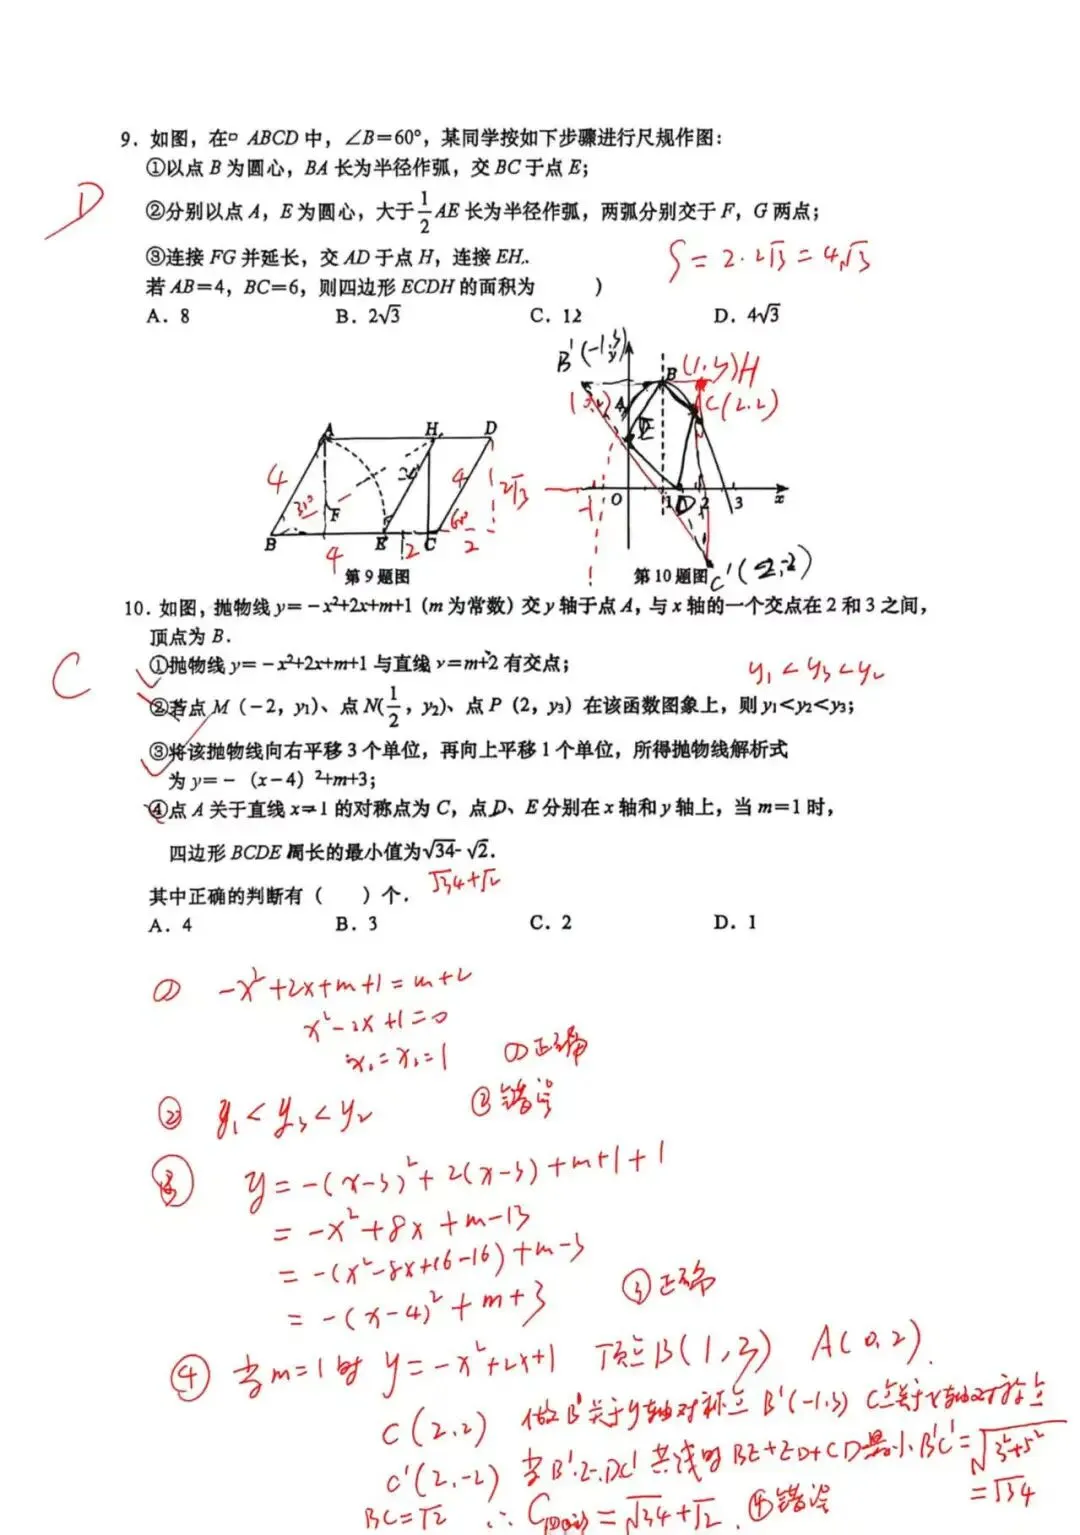 9. 如图，在▱ ABCD 中，∠B=60°，某同学按如下步骤进行尺规作图：
①以点 B 为圆心，BA 长为半径作弧，交 BC 于点 E；
D
②分别以点 A，E 为圆心，大于 1/2 AE 长为半径作弧，两弧分别交于 F，G 两点；
③连接 FG 并延长，交 AD 于点 H，连接 EH.
S = 2·2√3 = 4√3
若 AB=4，BC=6，则四边形 ECDH 的面积为 )
A. 8 B. 2√3 C. 12 D. 4√3
B'(-1,3)
B (1,3) H
A C(2,2)
A H D
E
4 4 2√3
O 1 D 2 3 x
-1
F 60°
B 4 E 2 C 2
第 9 题图 第 10 题图 C'(2,-2)
10. 如图，抛物线 y=-x²+2x+m+1（m 为常数）交 y 轴于点 A，与 x 轴的一个交点在 2 和 3 之间，
顶点为 B.
C
①抛物线 y=-x²+2x+m+1 与直线 y=m+2 有交点；
y₁<y₃<y₂
②若点 M（-2，y₁）、点 N(1/2，y₂)、点 P（2，y₃）在该函数图象上，则 y₁<y₂<y₃；
③将该抛物线向右平移 3 个单位，再向上平移 1 个单位，所得抛物线解析式
为 y=-（x-4）²+m+3；
④点 A 关于直线 x=1 的对称点为 C，点 D、E 分别在 x 轴和 y 轴上，当 m=1 时，
四边形 BCDE 周长的最小值为√34-√2.
√34+√2
其中正确的判断有（ ）个.
A. 4 B. 3 C. 2 D. 1
① -x²+2x+m+1=m+2
x²-2x+1=0
x₁=x₂=1 ①正确
② y₁<y₃<y₂ ②错误
③ y=-(x-3)²+2(x-3)+m+1+1
=-x²+8x+m-13
=-(x²-8x+16-16)+m-3
=-(x-4)²+m+3 ③正确
④ 当m=1时 y=-x²+2x+1 顶点B(1,3) A(0,2).
C(2,2) 做B关于y轴对称点 B'(-1,3) C点关于x轴对称点
C'(2,-2) 当B'.E.DC'共线时 BE+ED+CD最小 B'C'=√3²+5²
=√34
BC=√2 ∴ C四边形=√34+√2. ④错误